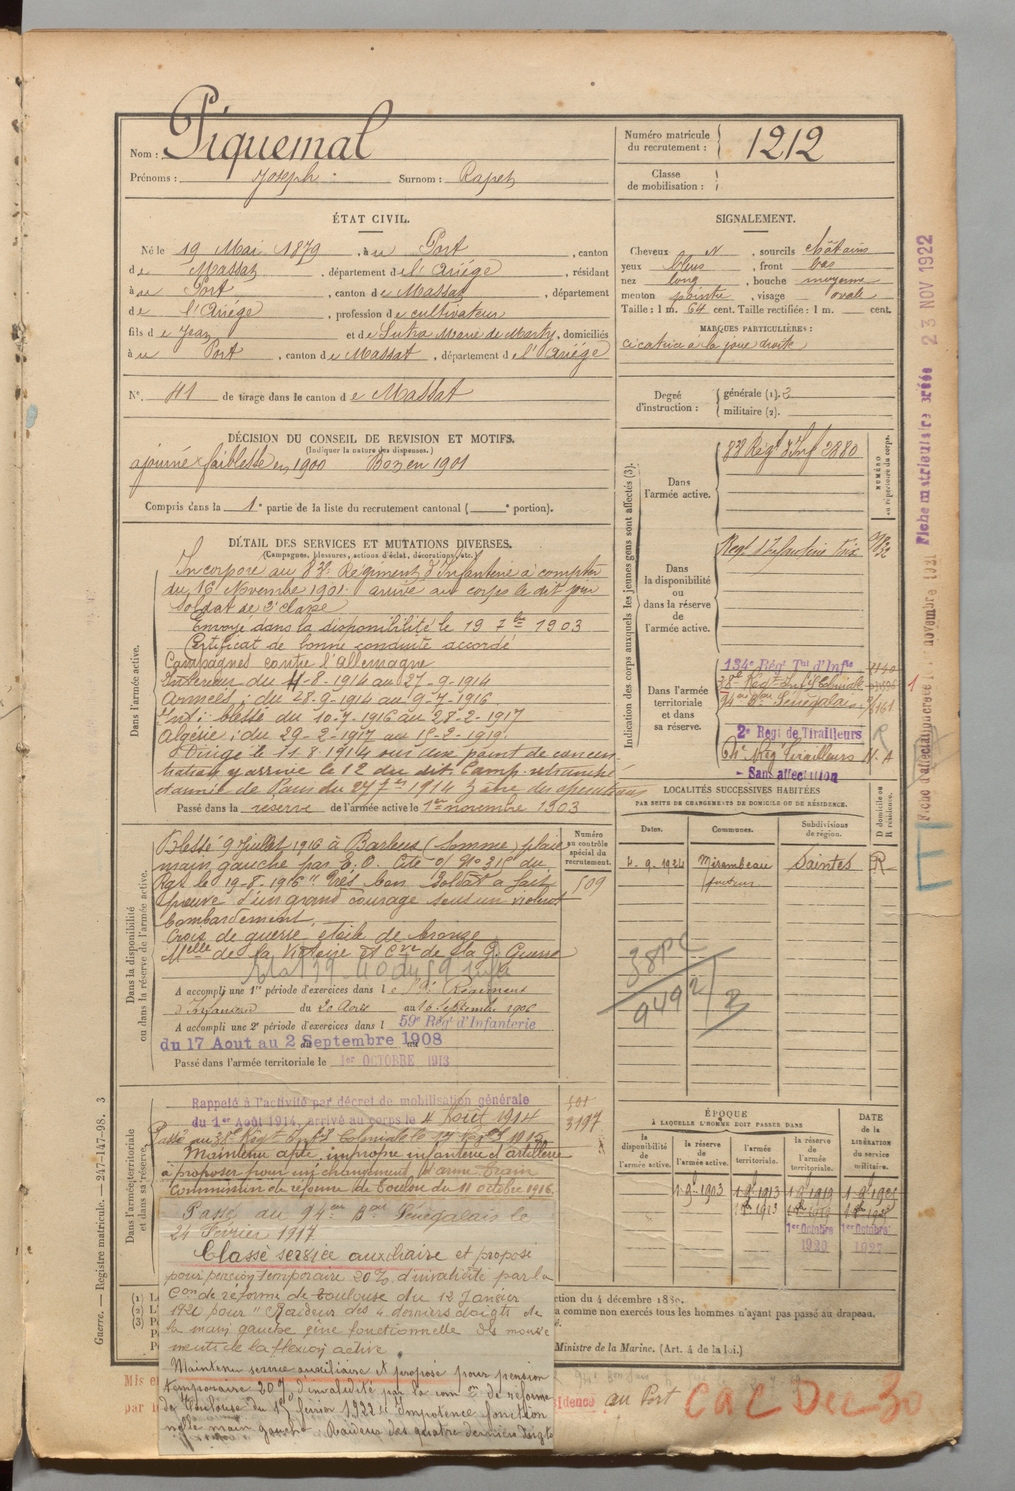 Nom : Piquemal
Prénoms : Joseph Surnom : Rapet
Numéro matricule du recrutement : 1212
Classe de mobilisation :
ÉTAT CIVIL.
Né le 19 Mai 1879, à Port, canton
de Massat, département de l'Ariège, résidant
à Port, canton de Massat, département
de l'Ariège, profession de cultivateur
fils de Jean et de Sutra Marie de Marty, domiciliés
à Port, canton de Massat, département de l'Ariège
N°. 41 de tirage dans le canton de Massat
SIGNALEMENT.
Cheveux N, sourcils châtains
yeux bleus, front bas
nez long, bouche moyenne
menton pointu, visage ovale
Taille : 1 m. 64 cent. Taille rectifiée : 1 m. cent.
MARQUES PARTICULIÈRES :
cicatrice à la joue droite
Degré d'instruction : générale (1). 3
militaire (2).
DÉCISION DU CONSEIL DE REVISION ET MOTIFS.
(Indiquer la nature des dispenses.)
ajourné faiblesse en 1900 Bon en 1901
Compris dans la 1e partie de la liste du recrutement cantonal ( e portion).
DÉTAIL DES SERVICES ET MUTATIONS DIVERSES.
(Campagnes, blessures, actions d'éclat, décorations, etc.)
Dans l'armée active.
Incorporé au 83e Régiment d'Infanterie à compter
du 16 Novembre 1901 arrivé au corps le dit jour
soldat de 2e classe
Envoyé dans la disponibilité le 19 7bre 1903
Certificat de bonne conduite accordé
Campagnes contre l'Allemagne
Intérieur du 4-8-1914 au 27-9-1914
Armées : du 28-9-1914 au 9-7-1916
Int : blessé du 10-7-1916 au 28-2-1917
Algérie : du 29-2-1917 au 15-2-1919.
Dirigé le 11 8 1914 sur aux point de concen
tration y arrivé le 12 du dit. Camp retranché
d'armée de Paris du 27 7bre 1914 zone des opérations
Passé dans la réserve de l'armée active le 1er novembre 1903
Dans la disponibilité ou dans la réserve de l'armée active.
Blessé 9 Juillet 1916 à Barleux (Somme) plaie
main gauche par E. O. Cité O/ No 315 du
Rgt le 19-8-1916 "Très bon Soldat a fait
preuve d'un grand courage sous un violent
bombardement.
Croix de guerre étoile de bronze
Melle de la Victoire et Cve de la G. Guerre
A accompli une 1re période d'exercices dans le Régiment
d'Infanterie du 20 Août au 16 Septembre 1906
A accompli une 2e période d'exercices dans l 59e Rég' d'Infanterie
du 17 Aout au 2 Septembre 1908
Passé dans l'armée territoriale le 1er OCTOBRE 1913
Numéro au contrôle spécial du recrutement.
509
Dans l'armée territoriale et dans sa réserve.
Rappelé à l'activité par décret de mobilisation générale
du 1er Août 1914, arrivé au corps le 4 Août 1914
Maintenu apte, impropre infanterie et artillerie
à proposer pour un changement d'arme Train
Commission de réforme de Toulon du 11 octobre 1916.
3197
Passé au 94eme Bon Sénégalais le
21 Février 1917
Classé service auxiliaire et proposé
pour pension temporaire 20% d'invalidité par la
Con de réforme de Toulouse du 12 Janvier
1920 pour "Raideur des 4 derniers doigts de
la main gauche gêne fonctionnelle des mouve
ments de la flexion active.
Maintenu service auxiliaire et proposé pour pension
temporaire 20% d'invalidité par la com on de réforme
de Toulouse du 15 février 1922 "Impotence fonction
nelle main gauche. Raideur des quatre derniers doigts
Indication des corps auxquels les jeunes gens sont affectés (3).
NUMÉRO au répertoire du corps.
Dans l'armée active.
83e Régt d'Inf 2880
Dans la disponibilité ou dans la réserve de l'armée active.
Regt d'Infanterie
Dans l'armée territoriale et dans sa réserve.
134e Régt Tal d'Infie
38e Régt Inf Coloniale
94eme Bon Sénégalais
2e Regt de Tirailleurs
N. A
- Sans affectation
LOCALITÉS SUCCESSIVES HABITÉES
PAR SUITE DE CHANGEMENTS DE DOMICILE OU DE RÉSIDENCE.
Dates. Communes. Subdivisions de région. D domicile ou R résidence.
4. 9. 1924 Mirambeau Saintes R
9492
ÉPOQUE
À LAQUELLE L'HOMME DOIT PASSER DANS
la disponibilité de l'armée active. la réserve de l'armée active. l'armée territoriale. la réserve de l'armée territoriale. DATE de la LIBÉRATION du service militaire.
1er Octobre 1920
(1)
(2)
(3)
ction du 4 décembre 1830.
a comme non exercés tous les hommes n'ayant pas passé au drapeau.
Ministre de la Marine. (Art. 4 de la loi.)
sidence au Port
CaC Dec 30
Guerre. — Registre matricule. — 247-147-98. 3
Fiche matriculaire créée 23 NOV 1922